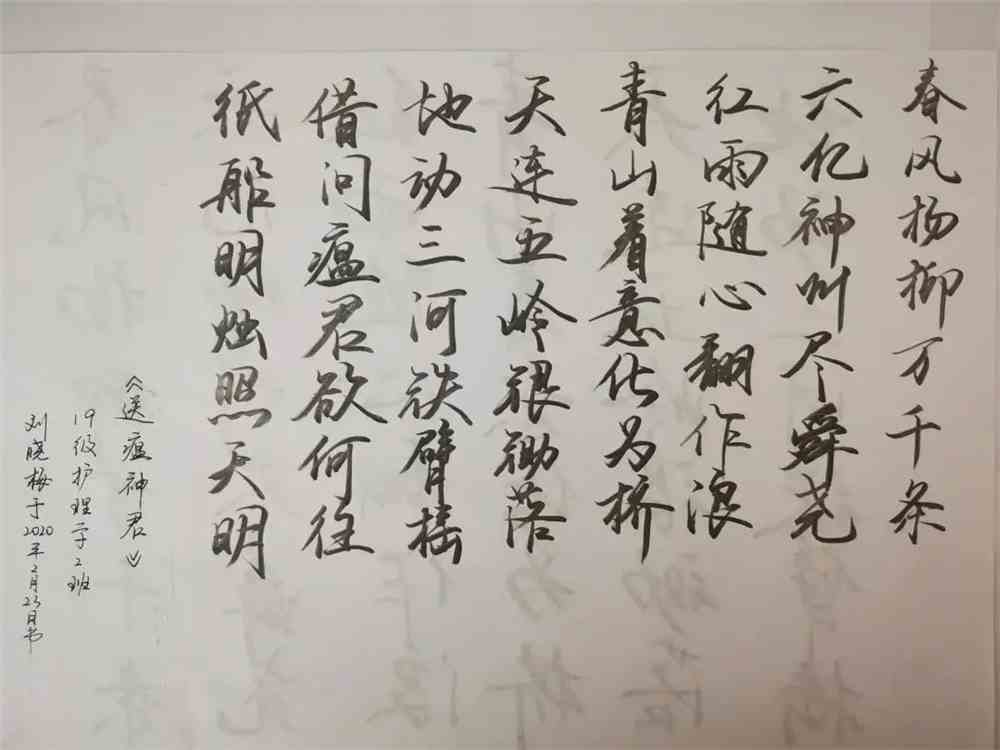 春风杨柳万千条
六亿神州尽舜尧
红雨随心翻作浪
青山着意化为桥
天连五岭银锄落
地动三河铁臂摇
借问瘟君欲何往
纸船明烛照天明
《送瘟神君》
19级护理学2班
刘晓梅于2020年2月23日书